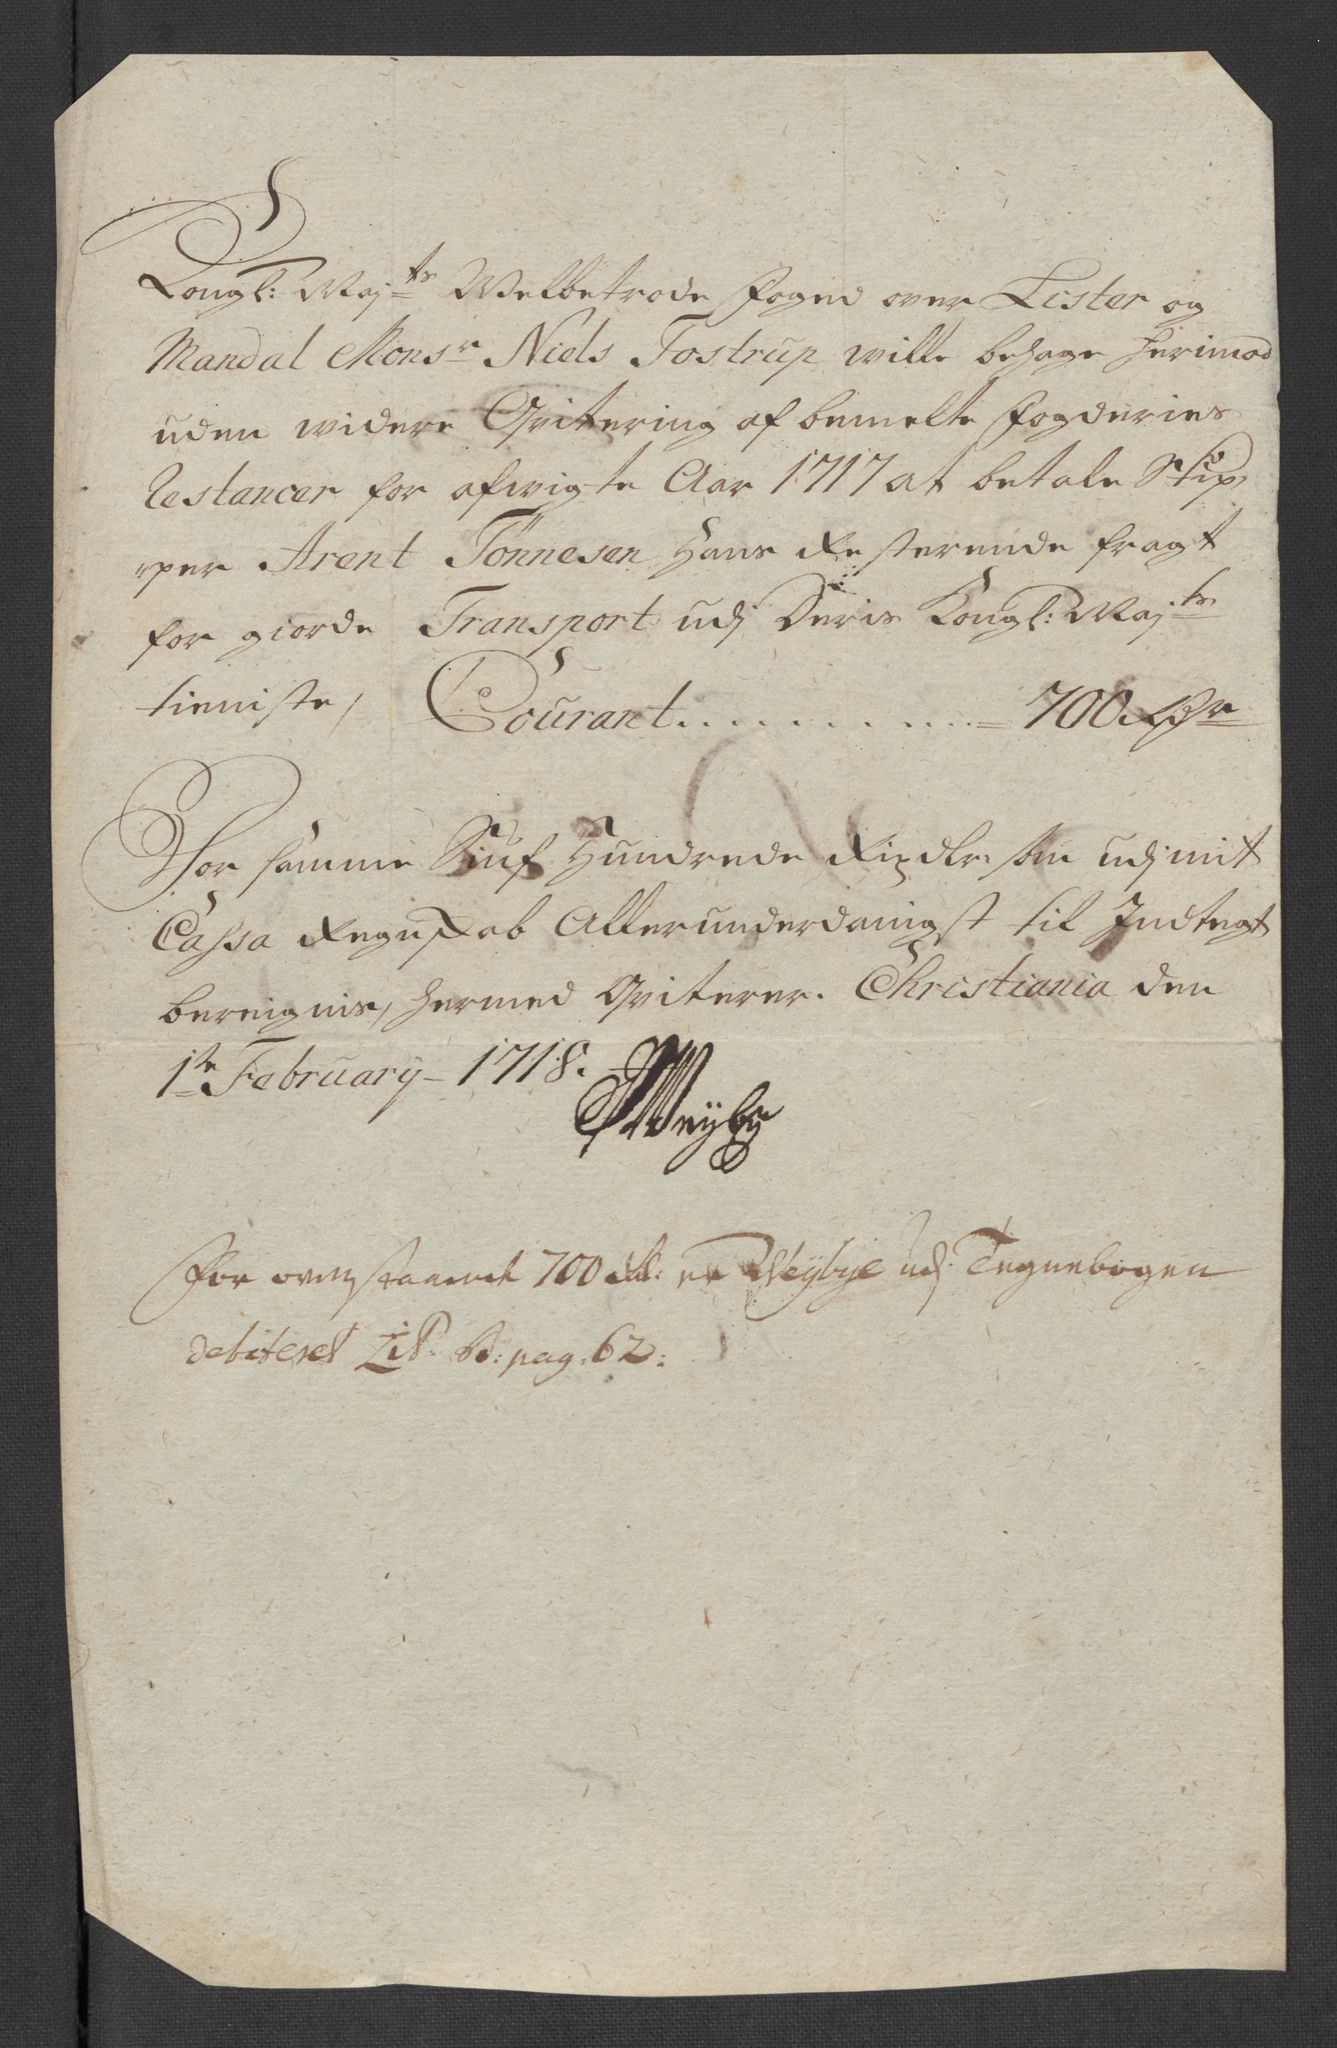 Kongl: Maj:ts Welbetrode Foged over Lister og
Mandal Monsr Niels Tostrup wille behage herimod
uden widere Qvitering af bemelte Fogderies
Restancer for afwigte Aar 1717 at betale Skip,
,,per Arent Tönnesen Hans Resterende fragt
for giorde Transport udj Deris Kongl: Maj:ts
tieniste, Courant . . . . . . . . . = 700 Rdr
For samme Siuf Hundrede Rixdlr. som udj mit
Cassa Regnskab Allerunderdanigst til Indtegt
bereignis, hermed Qviterer. Christiania den
1te February - 1718.
Weyby
For ovenstaaende 700 Rd: er Weybye udj Tegnebogen
debiteret Lit. B: pag: 62: